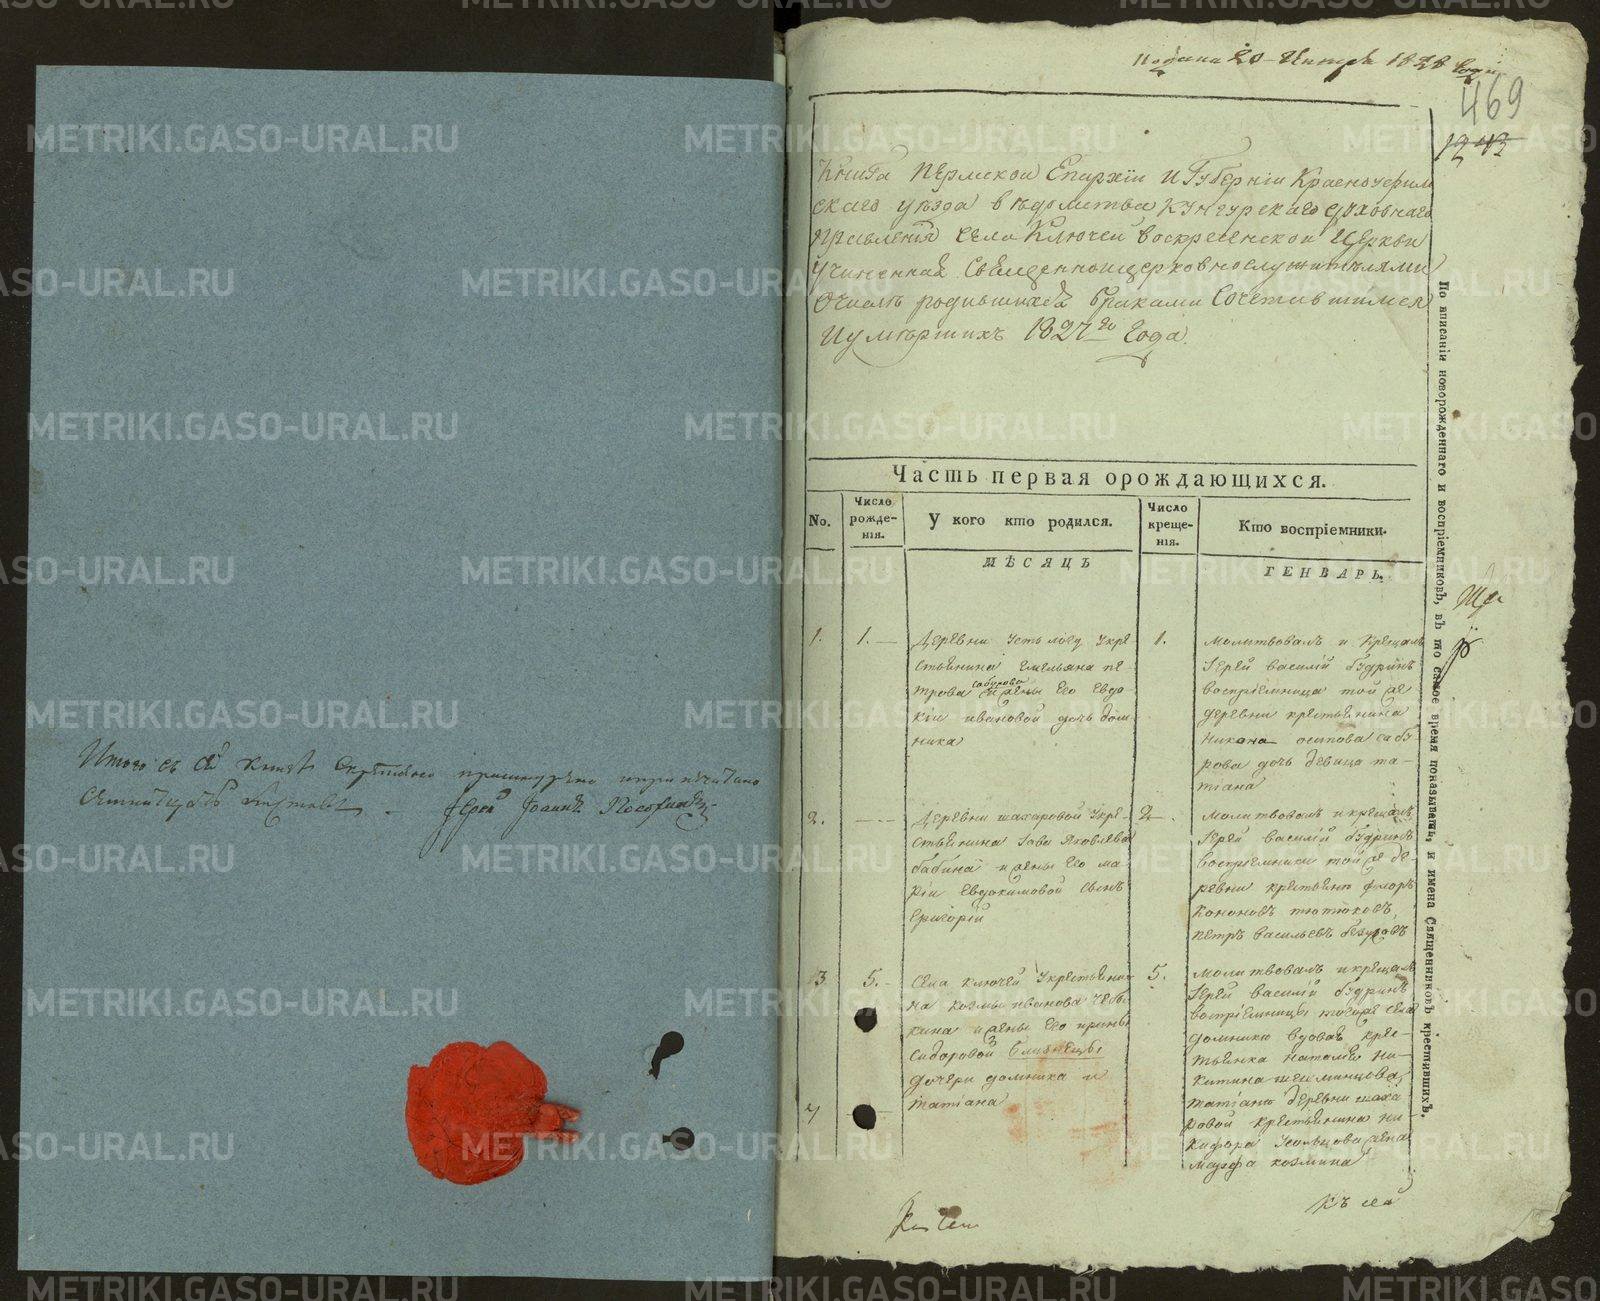 Итого въ сей книге
листовъ
Іерей Іоаннъ
подана 20 1828 года
469
1243
Книга Пермской Епархіи и Губерніи Красноуфим
скаго уѣзда вѣдомства Кунгурскаго духовнаго
правленія села Ключей воскресенской церкви
учиненная священноцерковнослужителями
очасть родившихся браками сочетавшимся
иумершихъ 1827го года.
Часть первая орождающихся.
No. Число рожде-нія. У кого кто родился. Число креще-нія. Кто воспріемники.
МѢСЯЦЪ ГЕНВАРЬ.
1. 1. —
деревни усть маед укре
стьянина емельяна пе
трова сабурова и жены его евдо
кіи ивановой дочь дом
ника
1.
молитвовалъ и крещалъ
іерей василій будринъ
воспріемница той же
деревни крестьянина
никона осипова сабу
рова дочь девица та-
тіана
2. — —
деревни шахаровой укре-
стьянина савы яковлева
бабина и жены его ма-
ріи евдокимовой сынъ
григорій
2.
молитвовалъ и крещалъ
іерей василій будринъ
воспріемники той же де-
ревни крестьяне флоръ
кононовъ тютюковъ,
петръ васильевъ
3 5. —
села ключей укрестьянин
на козмы иванова
кина и жены его ирины
сидоровой близнецы
дочери домника и
татіана
4 —
5.
молитвовалъ и крещалъ
іерей василій будринъ
воспріемницы тогоже села
домнику вдова крес-
тьянка наталья ни-
китина
татіану деревни шаха
ровой крестьянина ни
кифора усольцова жена
марфа козмина
къ сей
По вписаніи новорожденнаго и воспріемниковъ, въ то самое время показывать, и имена Священниковъ крестившихъ.
METRIKI.GASO-URAL.RU